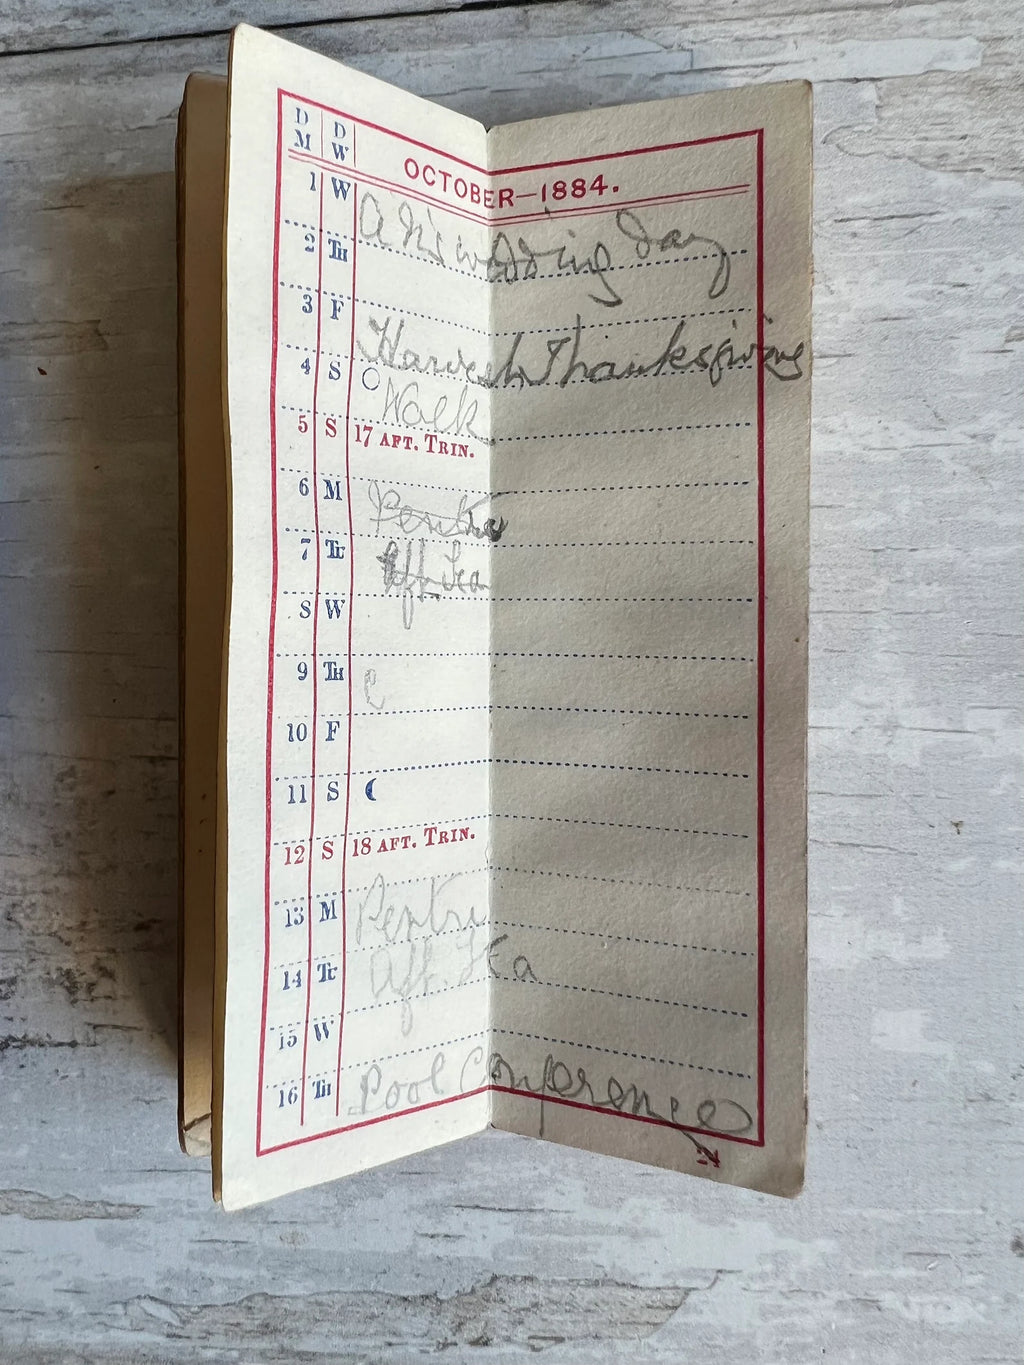 D M D W
OCTOBER—1884.
1 W A his wedding day
2 TH
3 F Harvest Thanksgiving
4 S Walk
5 S 17 AFT. TRIN.
6 M Pentre
7 TU Aff. Tea
8 W
9 TH
10 F
11 S
12 S 18 AFT. TRIN.
13 M Pentre
14 TU Aff. Tea
15 W
16 TH Pool Conference